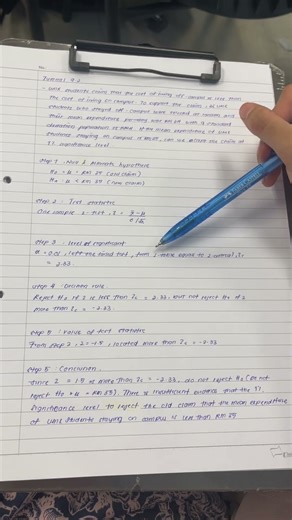 Tutorial 9.2
- UNIE students claim that the cost of living off campus is less than
the cost of living on campus. To support the claim, 36 UNIE
students who stayed off campus were selected at random and
their mean expenditure per
standard population is
students staying on campus is RM 29, can we
1% significance level
Step 1 : Null & Alternate hypothesis
H0 = μ = RM 29 (old claim)
H1 = μ < RM 29 (new claim)
Step 2 : Test statistic
One sample z-test, z =
Step 3 : Level of significant
α = 0.01, left one tailed test, from z
= -2.33.
Step 4 : Decision rule
Reject H0 if z is less than Zc = -2.33, but not reject H0 if z
more than Zc = -2.33.
Step 5 : Value of test statistic
From step 2, z = -1.5, located more than Zc = -2.33
Step 6 : Conclusion
Since z = -1.5 is more than Zc = -2.33, do not reject H0 (Do not
reject H0 = μ = RM 29). There is insufficient evidence that the 1%
significance level to reject the old claim that the mean expenditure
of UNIE students staying on campus is less than RM 29